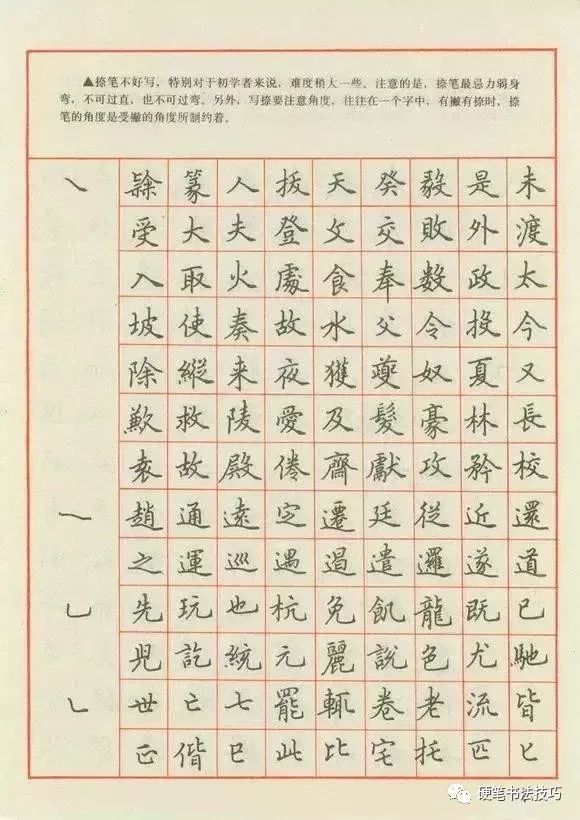 ▲捺笔不好写，特别对于初学者来说，难度稍大一些。注意的是，捺笔最忌力弱身
弯，不可过直，也不可过弯。另外，写捺要注意角度，往往在一个字中，有撇有捺时，捺
笔的角度是受撇的角度所制约着。
㇏ 篆 人 拔 天 癸 毅 是 未
受 大 夫 登 文 交 敗 外 渡
入 取 火 處 食 奉 数 政 太
坡 使 奏 故 水 父 令 投 今
除 縱 来 夜 獲 夔 奴 夏 又
歎 救 陵 愛 及 髮 豪 林 長
袁 故 殿 倦 齋 獻 攻 矜 校
趙 通 遠 定 遷 廷 從 近 還
之 運 巡 遇 遏 遣 邏 遂 道
乚 先 玩 也 杭 免 飢 龍 既 已
兜 訖 統 元 麗 說 色 尤 馳
乚 世 亡 七 罷 輒 卷 老 流 皆
正 偕 巳 此 比 宅 托 匹 匕
硬笔书法技巧